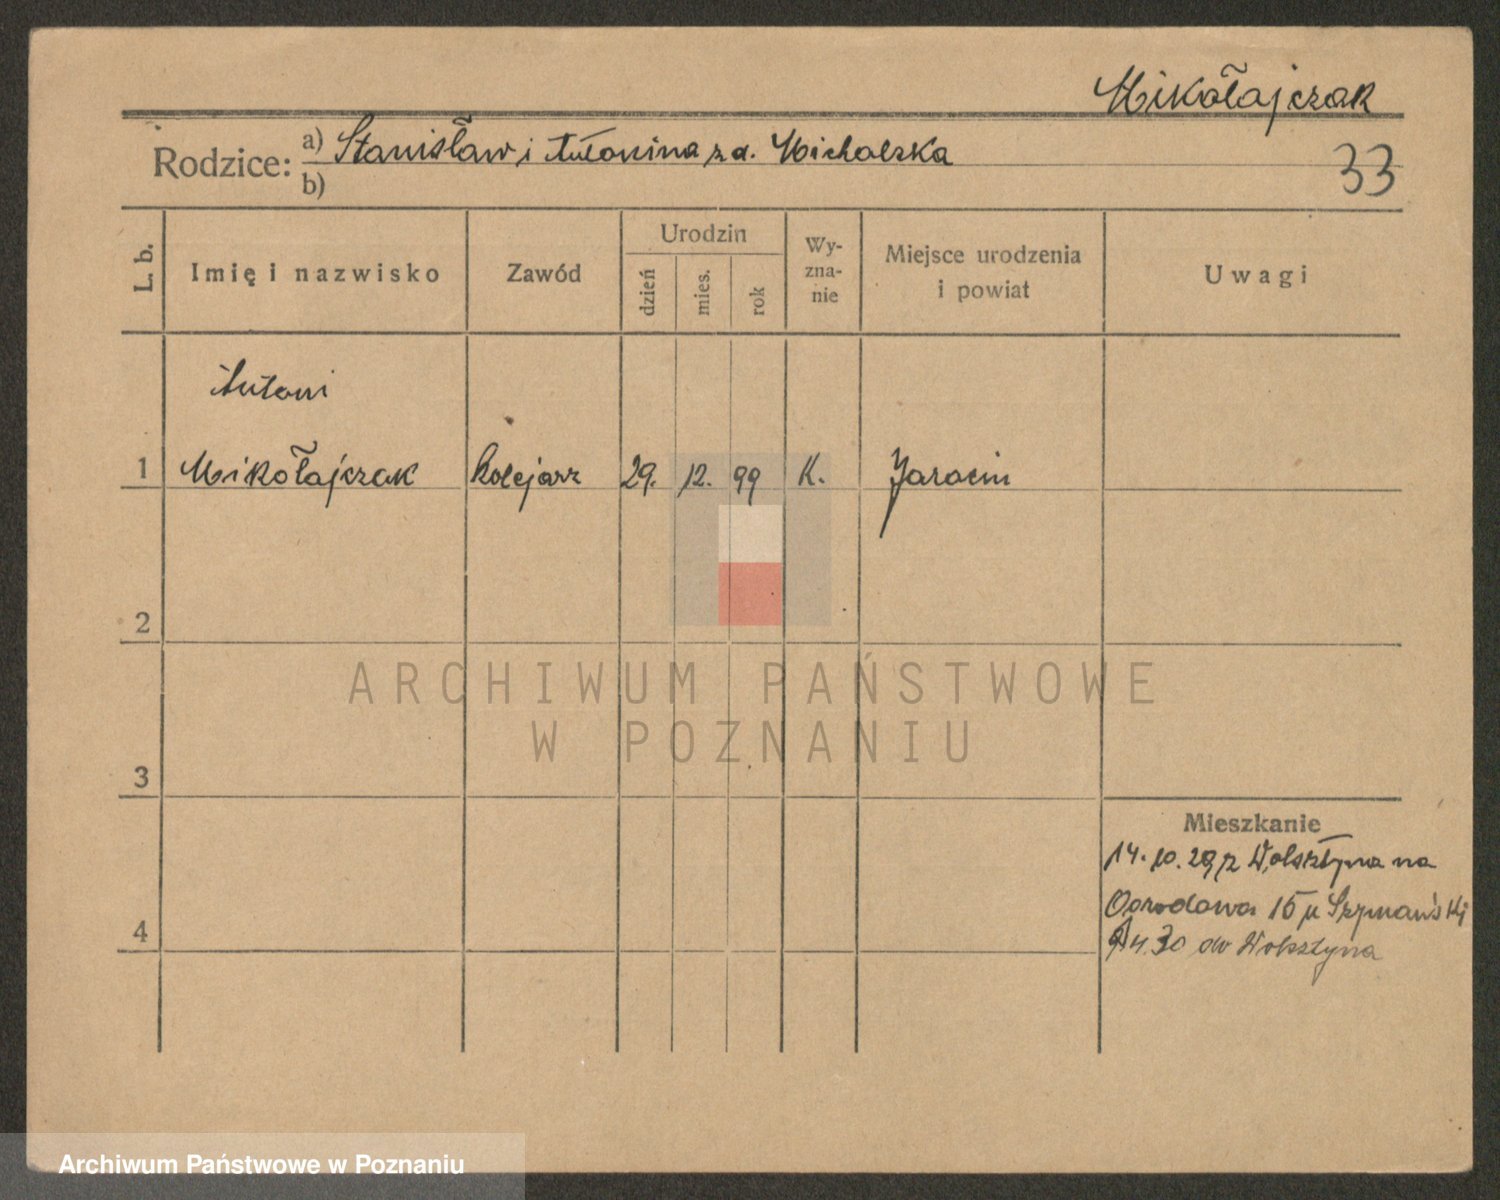 Mikołajczak
Rodzice: a) Stanisław i Antonina z d. Michalska
b)
33
L. b.
Imię i nazwisko
Zawód
Urodzin
dzień
mies.
rok
Wy-
zna-
nie
Miejsce urodzenia
i powiat
Uwagi
Antoni
1 Mikołajczak kolejarz 29. 12. 99 K. Jarocin
2
ARCHIWUM PAŃSTWOWE
W POZNANIU
3
Mieszkanie
14.10.29 z Wolsztyna na
Ogrodowa 15 u Szymański
4
4.30 do Wolsztyna
Archiwum Państwowe w Poznaniu